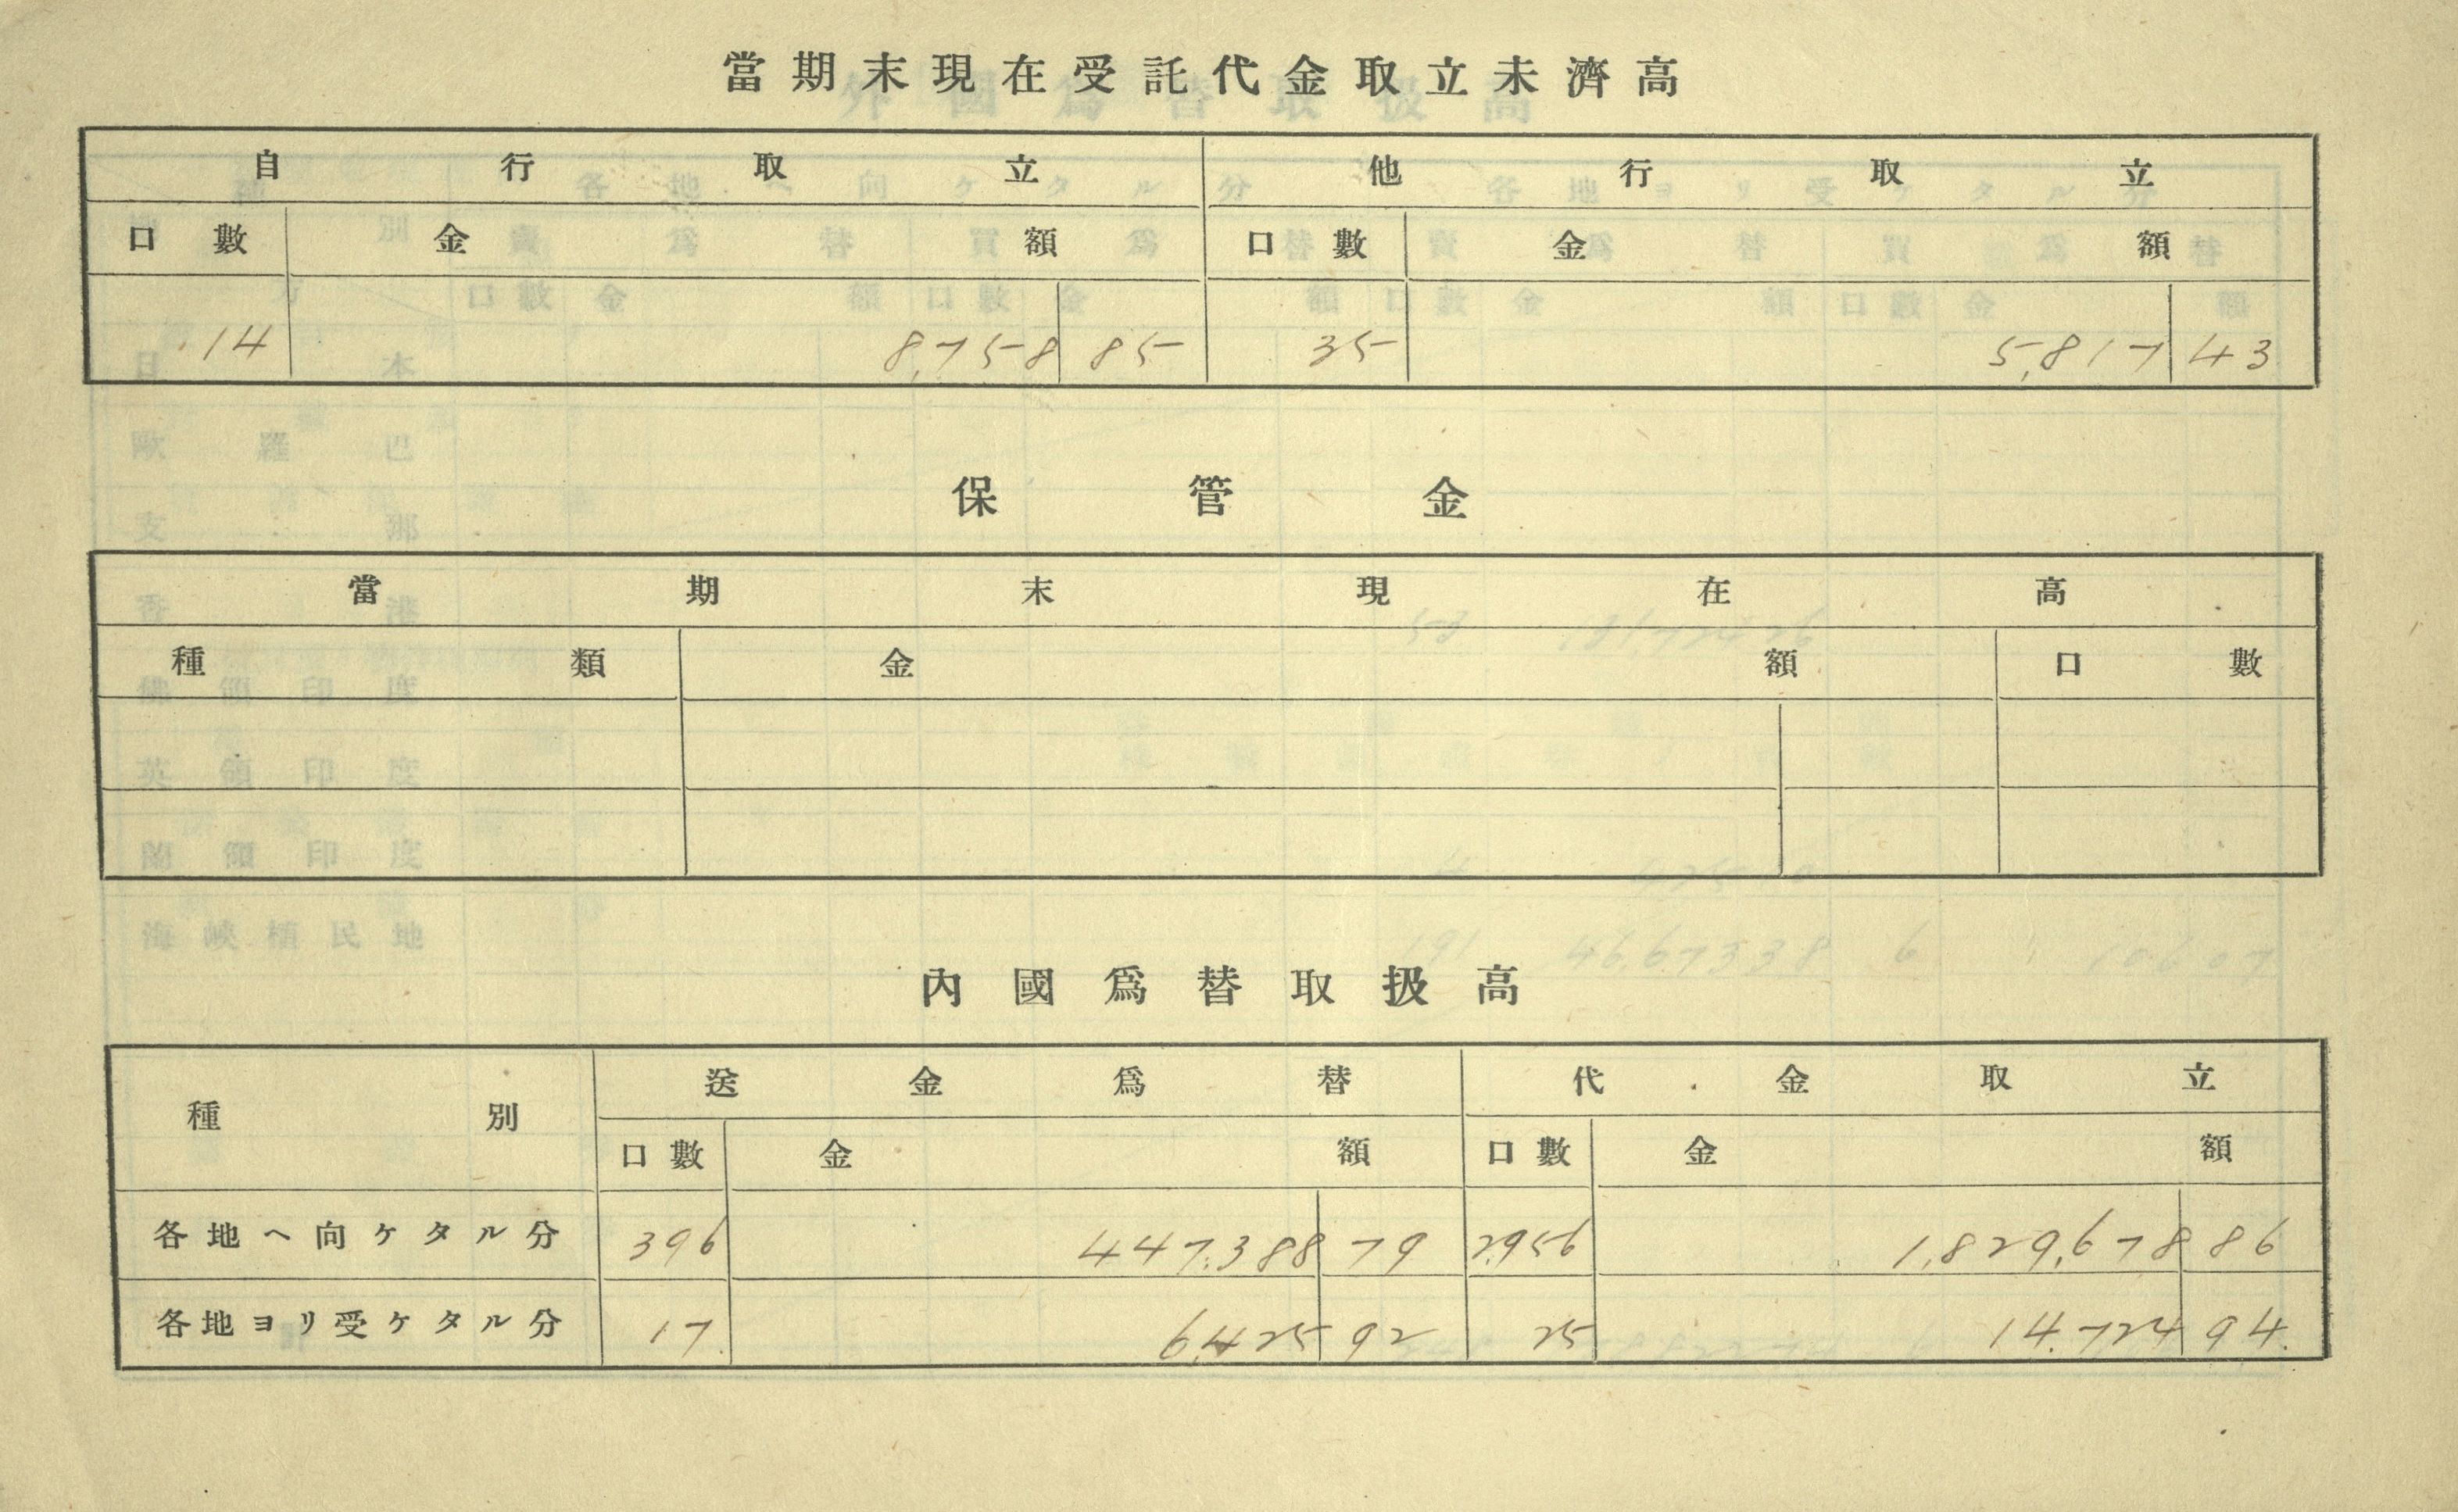 當期末現在受託代金取立未濟高
自行取立 他行取立
口數 金額 口數 金額
14 8,758 85 35 5,817 43
保管金
當期末現在高
種類 金額 口數
內國爲替取扱高
種別 送金爲替 代金取立
口數 金額 口數 金額
各地ヘ向ケタル分 396 447,388 79 2,956 1,829,678 86
各地ヨリ受ケタル分 17 6,425 92 25 14,724 94